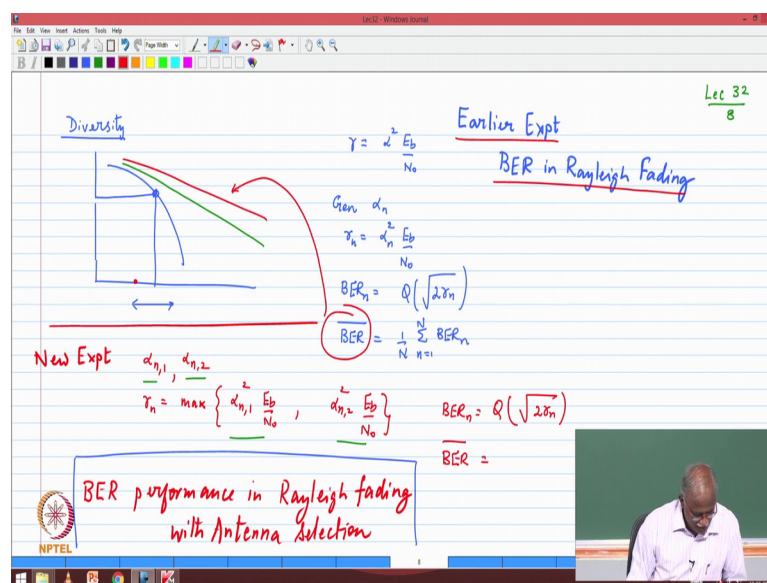 Lec32 - Windows Journal
File Edit View Insert Actions Tools Help
Page Width
B I
Lec 32
8
Diversity
γ = α² Eb/N₀
Earlier Expt
BER in Rayleigh Fading
Gen αₙ
γₙ = αₙ² Eb/N₀
BERₙ = Q(√2γₙ)
BER = 1/N Σ n=1 N BERₙ
New Expt αₙ,₁ , αₙ,₂
γₙ = max { αₙ,₁² Eb/N₀ , αₙ,₂² Eb/N₀ }
BERₙ = Q(√2γₙ)
BER =
BER performance in Rayleigh fading
with Antenna selection
NPTEL
8